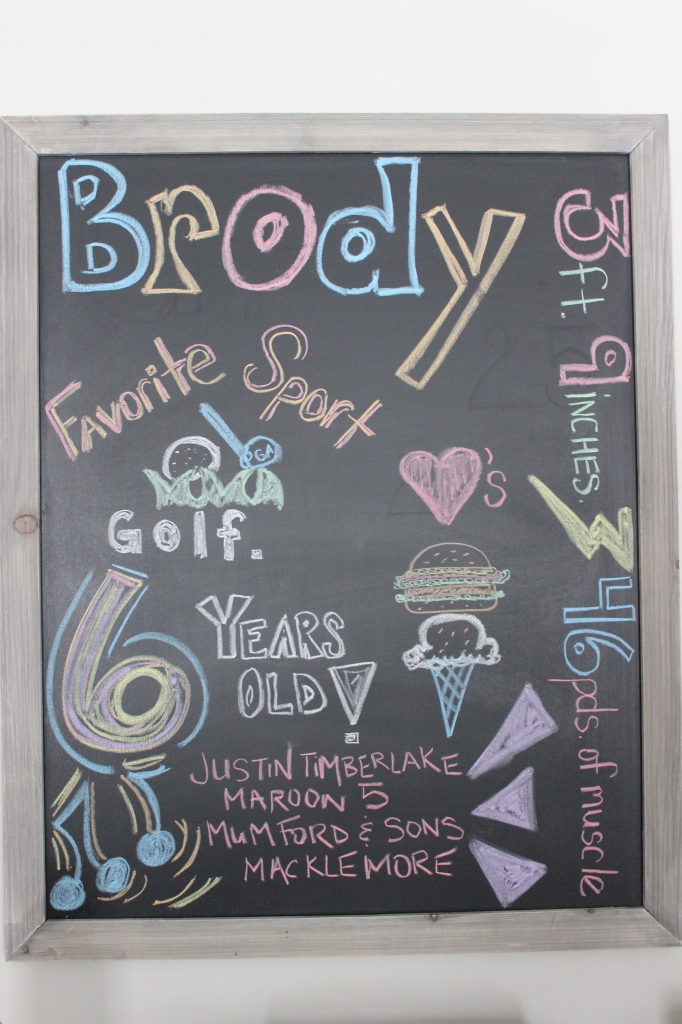 Brody
3 ft. 9 INCHES.
FAVORITE SPORT
PGA
Golf.
'S
6 YEARS
OLD!
46 pds. of muscle
JUSTIN TIMBERLAKE
MAROON 5
MUMFORD & SONS
MACKLEMORE